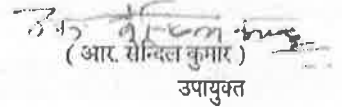 ( आर. सेन्दिल कुमार )
उपायुक्त